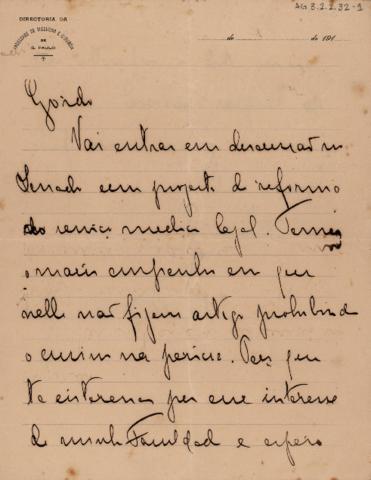 AG 3.2.2.32-1
DIRECTORIA DA
FACULDADE DE MEDICINA E CIRURGIA
DE
S. PAULO
de de 191
Gordo
Vai entrar em discussão no
Senado um projecto de reforma
do serviço medico legal. Tenho
o maior empenho em que
nelle não figure artigo prohibindo
o ensino na pericia. Peço que
te interesses por esse interesse
de minha Faculdade e espero